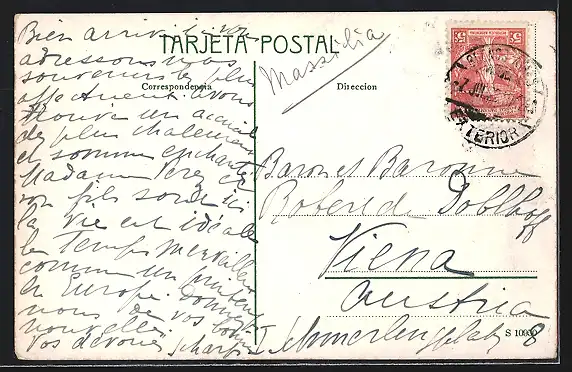 TARJETA POSTAL
Correspondencia
Direccion
Massilia
Bien arrivés
adressons nos
souvenirs les plus
affectueux à vous
trouvé un accueil
de plus chaleureux
et sommes enchantés
Madame Perez et
son fils sont ici
la vie est idéale
le temps merveilleux
comme un printemps
en Europe Donnez
nous de vos bonnes
nouvelles
vos dévoués
Baron et Baronne
Robert de Doblhoff
Viena
Austria
Schmerlingplatz 8
EXTERIOR
S 10930
5 5